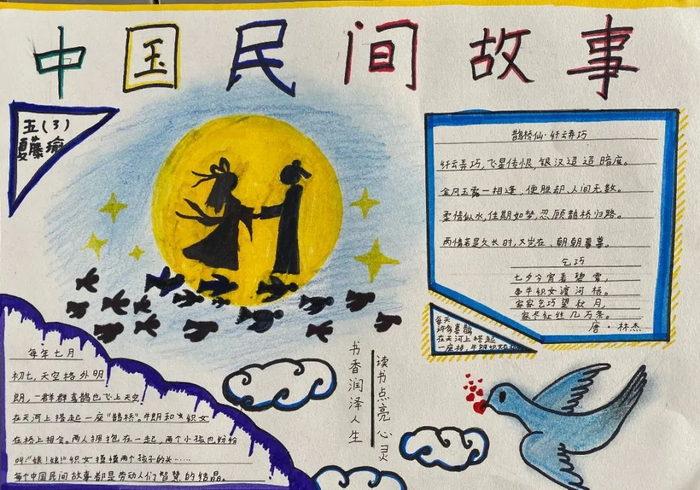 中国民间故事
五(3)
夏藤瑜
鹊桥仙·纤云弄巧
纤云弄巧,飞星传恨,银汉迢迢暗度。
金风玉露一相逢,便胜却,人间无数。
柔情似水,佳期如梦,忍顾鹊桥归路。
两情若是久长时,又岂在,朝朝暮暮。
乞巧
七夕今宵看碧霄,
牵牛织女渡河桥。
家家乞巧望秋月,
穿尽红丝几万条。
唐·林杰
每天
许多喜鹊
在天河上搭起
一座桥,牛郎织女在
每年七月
初七,天空格外明
朗,一群群喜鹊也飞上天空
在天河上搭起一座"鹊桥"。牛郎和织女
在桥上相会。两人拥抱在一起,两个小孩也纷纷
叫"娘!娘!"织女搂着两个孩子的头……
每个中国民间故事都是劳动人们智慧的结晶。
书香润泽人生
读书点亮心灵